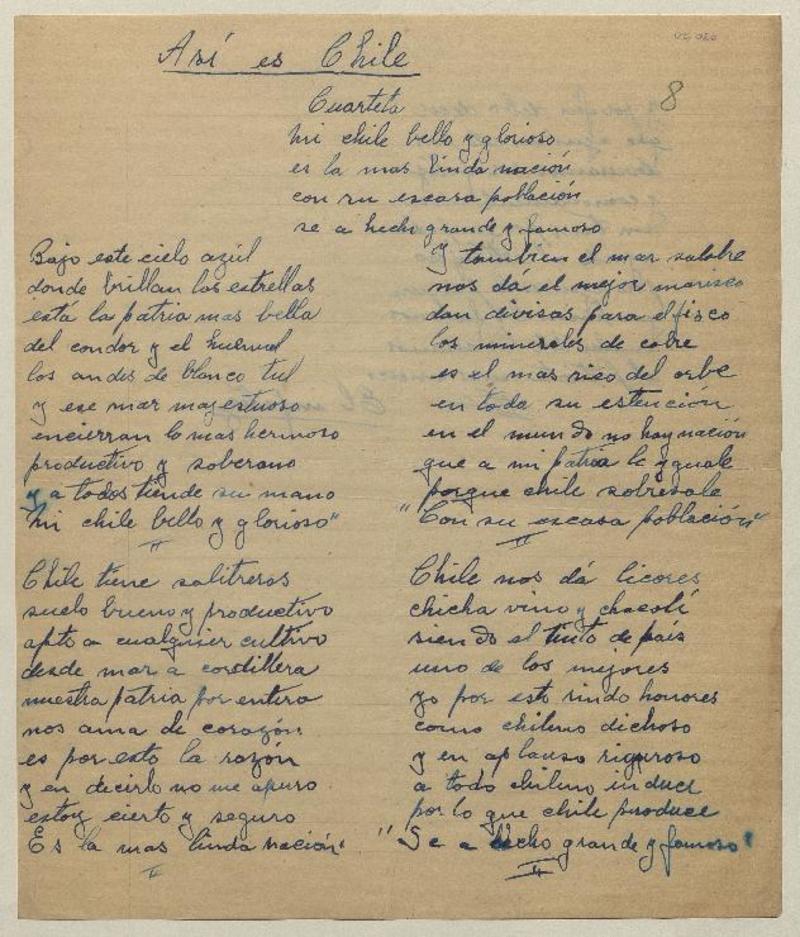 Así es Chile
8
Cuarteta
Mi chile bello y glorioso
es la mas linda nación
con su escasa población
se a hecho grande y famoso
Bajo este cielo azúl
donde brillan las estrellas
está la patria mas bella
del condor y el huemul
los andes de blanco tul
y ese mar majestuoso
encierran lo mas hermoso
productivo y soberano
y a todos tiende su mano
Mi chile bello y glorioso"
"
Chile tiene salitreras
suelo bueno y productivo
apto a cualquier cultivo
desde mar a cordillera
nuestra patria por entera
nos ama de corazón
es por esto la razón
y en decirlo no me apuro
estoy cierto y seguro
Es la mas linda nación"
"
Y tambien el mar salobre
nos dá el mejor marisco
dan divisas para el fisco
los minerales de cobre
es el mas rico del orbe
en toda su estención
en el mundo no hay nación
que a mi patria le yguale
porque chile sobresale
"Con su escasa población"
"
Chile nos dá licores
chicha vino y chacolí
siendo el tinto de país
uno de los mejores
yo por esto rindo honores
como chileno dichoso
y en aplauso riguroso
a todo chileno induce
por lo que chile produce
"Se a hecho grande y famoso"
"